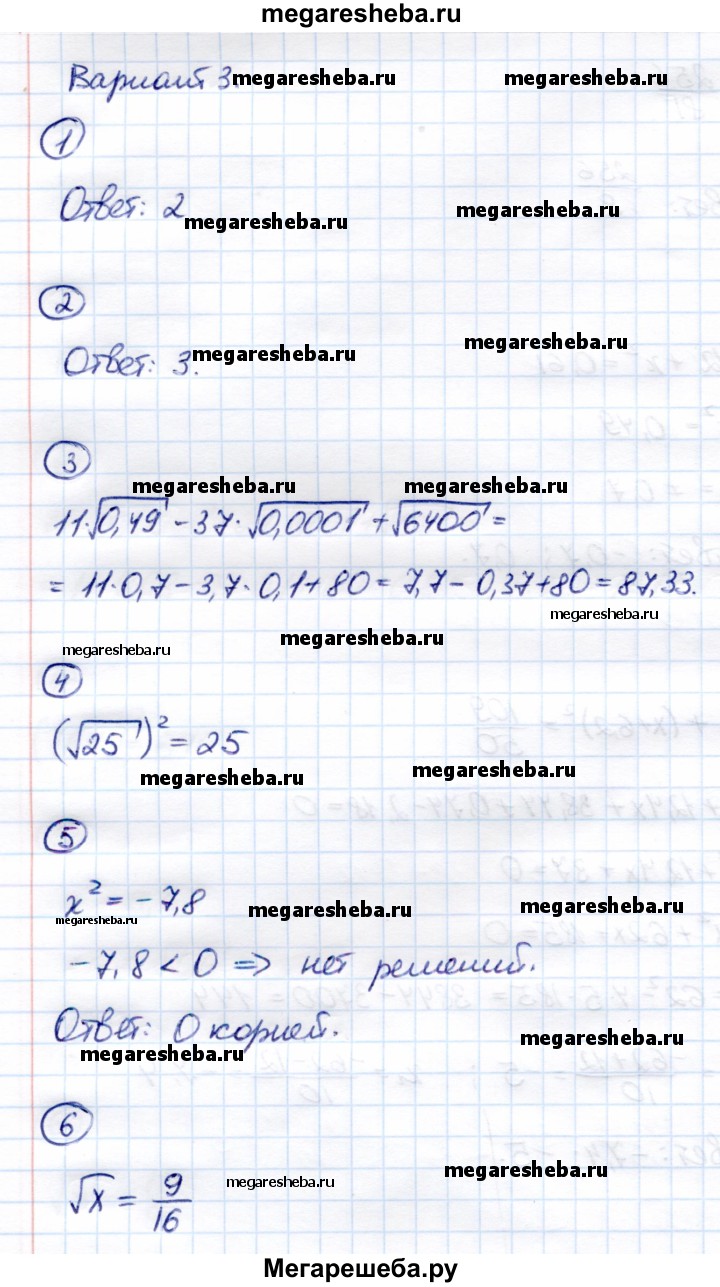 megaresheba.ru
Вариант 3. megaresheba.ru megaresheba.ru
1
Ответ: 2 megaresheba.ru megaresheba.ru
2
Ответ: 3. megaresheba.ru megaresheba.ru
3
megaresheba.ru megaresheba.ru
11·√0,49 - 37·√0,0001 + √6400 =
= 11·0,7 - 3,7·0,1 + 80 = 7,7 - 0,37 + 80 = 87,33.
megaresheba.ru
megaresheba.ru megaresheba.ru
4
(√25)² = 25
megaresheba.ru megaresheba.ru
5
x² = -7,8
megaresheba.ru megaresheba.ru megaresheba.ru
-7,8 < 0 => нет решений.
Ответ: 0 корней.
megaresheba.ru megaresheba.ru
6
√x = 9/16 megaresheba.ru megaresheba.ru
Мегарешеба.ру